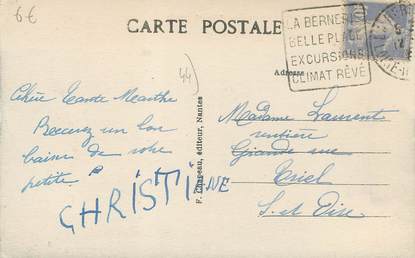 6€
CARTE POSTALE
LA BERNERIE
BELLE PLAGE
EXCURSIONS
CLIMAT RÊVÉ
Adresse
44
Chère Tante Marthe
Recevez un bon
baiser de votre
petite
CHRISTINE
F. Chapeau, éditeur, Nantes
Madame Laurent
rentière
Grande rue
Triel
S. et Oise